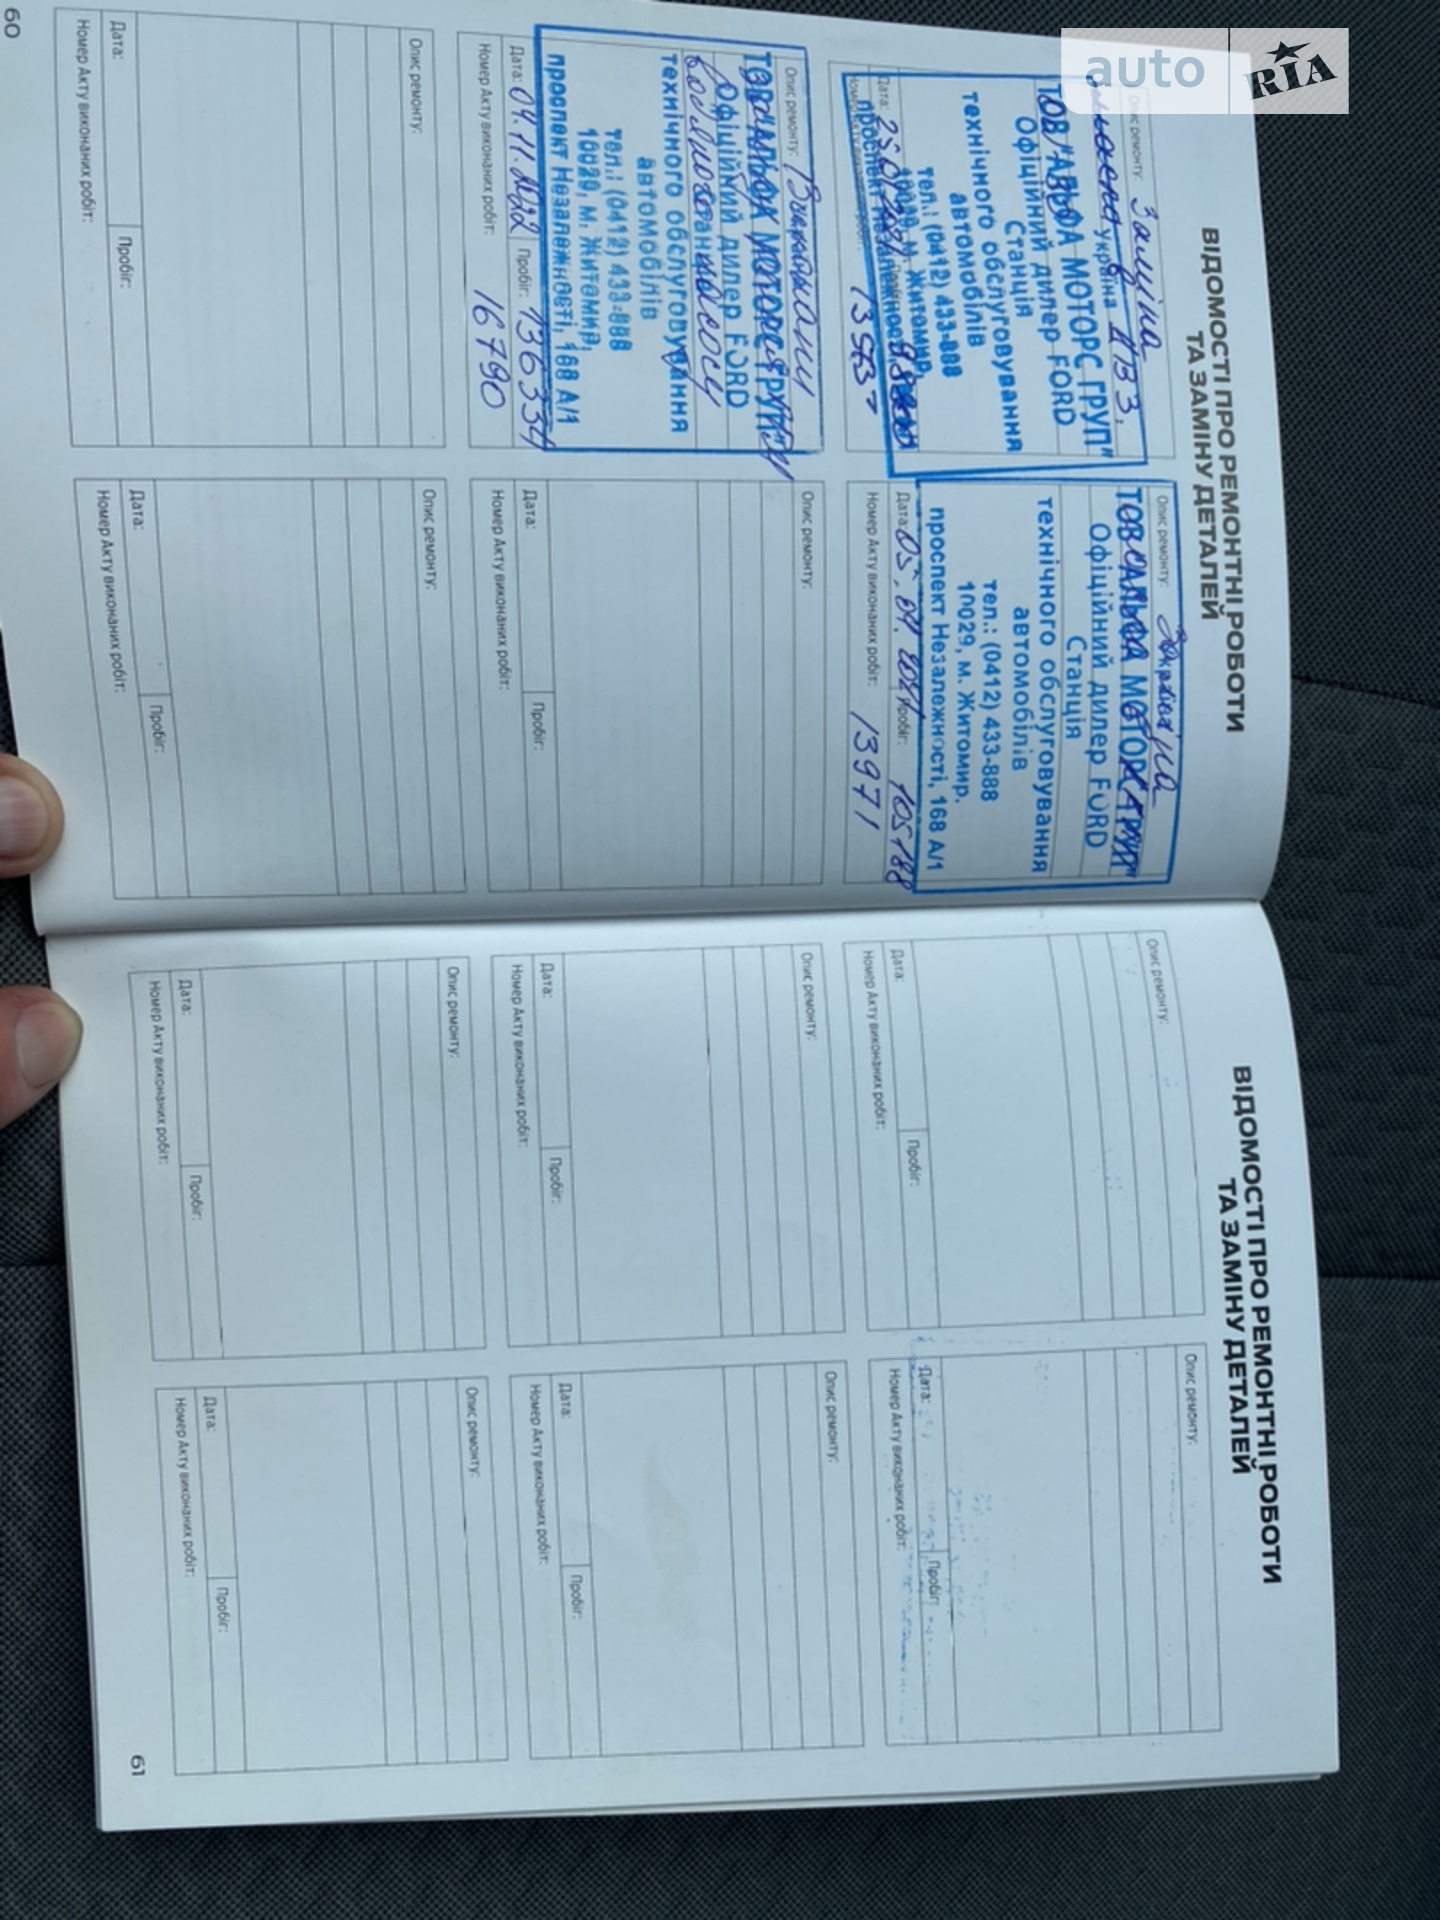 auto RIA
60
ВІДОМОСТІ ПРО РЕМОНТНІ РОБОТИ
ТА ЗАМІНУ ДЕТАЛЕЙ
Опис ремонту: Заміна
Україна
ТОВ "АЛЬФА МОТОРС ГРУП"
Офіційний дилер FORD
Станція
технічного обслуговування
автомобілів
тел.: (0412) 433-888
10029, м. Житомир,
проспект Незалежності,
Дата:
Номер Акту виконаних робіт:
Опис ремонту:
Україна
ТОВ "АЛЬФА МОТОРС ГРУП"
Офіційний дилер FORD
Станція
технічного обслуговування
автомобілів
тел.: (0412) 433-888
10029, м. Житомир.
проспект Незалежності, 168 А/1
Дата: 05.04.2021 Пробіг: 105188
Номер Акту виконаних робіт: 13971
Опис ремонту:
Офіційний дилер FORD
технічного обслуговування
автомобілів
тел.: (0412) 433-888
10029, м. Житомир,
проспект Незалежності, 168 А/1
Дата: 04.11.2022 Пробіг: 136334
Номер Акту виконаних робіт: 16790
Опис ремонту:
Дата: Пробіг:
Номер Акту виконаних робіт:
Опис ремонту:
Дата: Пробіг:
Номер Акту виконаних робіт:
Опис ремонту:
Дата: Пробіг:
Номер Акту виконаних робіт:
ВІДОМОСТІ ПРО РЕМОНТНІ РОБОТИ
ТА ЗАМІНУ ДЕТАЛЕЙ
Опис ремонту:
Дата: Пробіг:
Номер Акту виконаних робіт:
Опис ремонту:
Дата: Пробіг:
Номер Акту виконаних робіт:
Опис ремонту:
Дата: Пробіг:
Номер Акту виконаних робіт:
Опис ремонту:
Дата: Пробіг:
Номер Акту виконаних робіт:
Опис ремонту:
Дата: Пробіг:
Номер Акту виконаних робіт:
Опис ремонту:
Дата: Пробіг:
Номер Акту виконаних робіт:
61